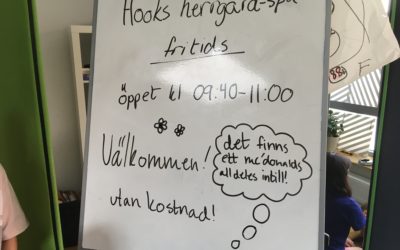 Hooks herrgård-spa
fritids
öppet kl 09:40-11:00
Välkommen!
det finns
ett mc'donalds
alldeles intill!
utan kostnad!